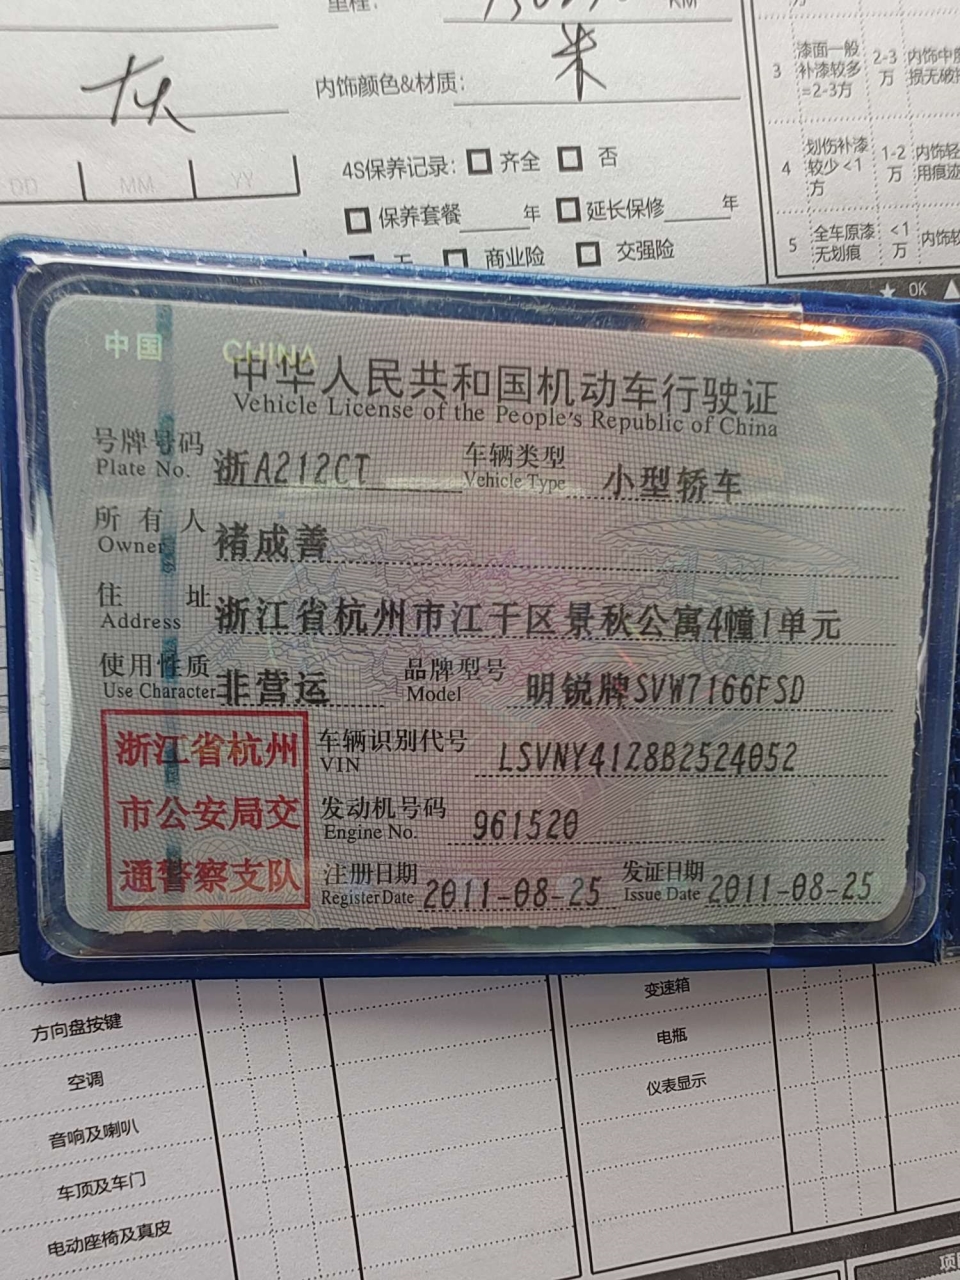 里程: KM
灰 内饰颜色&材质: 米
DD MM YY
4S保养记录: 齐全 否
保养套餐 年 延长保修 年
无 商业险 交强险
3 漆面一般补漆较多=2-3方 2-3万
4 划伤补漆较少<1方 1-2万
5 全车原漆无划痕 <1万
★ OK
中国 CHINA
中华人民共和国机动车行驶证
Vehicle License of the People's Republic of China
号牌号码 Plate No. 浙A212CT 车辆类型 Vehicle Type 小型轿车
所有人 Owner 褚成善
住址 Address 浙江省杭州市江干区景秋公寓4幢1单元
使用性质 Use Character 非营运 品牌型号 Model 明锐牌SVW7166FSD
浙江省杭州
市公安局交
通警察支队
车辆识别代号 VIN LSVNY41Z8B2524052
发动机号码 Engine No. 961520
注册日期 Register Date 2011-08-25 发证日期 Issue Date 2011-08-25
方向盘按键 变速箱
空调 电瓶
音响及喇叭 仪表显示
车顶及车门
电动座椅及真皮